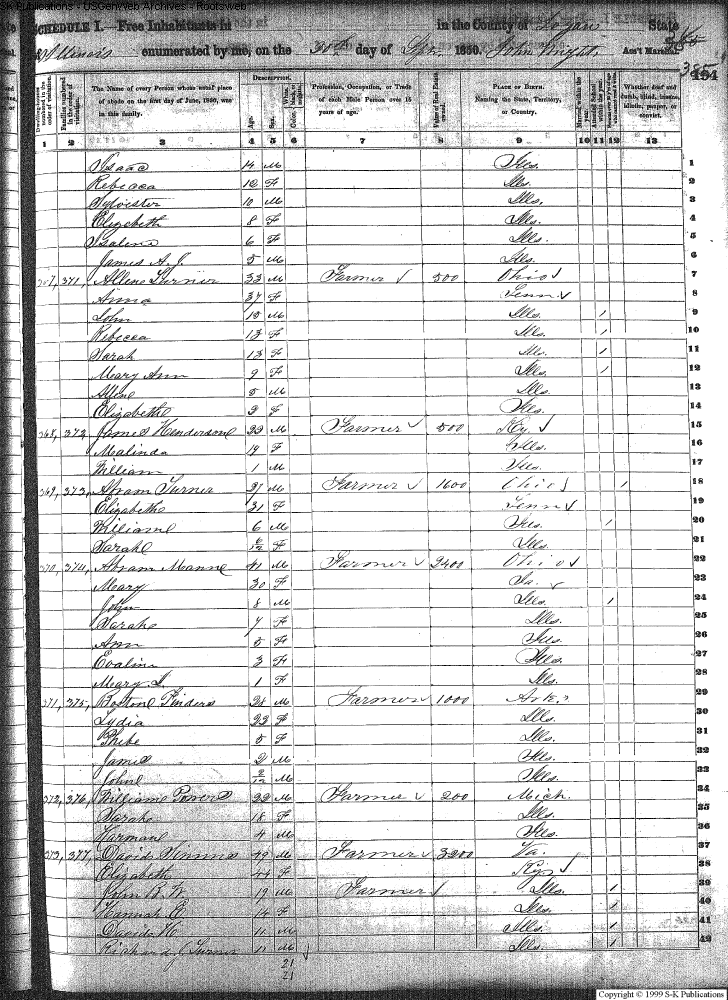 S-K Publications - USGenWeb Archives - Rootsweb
SCHEDULE I.—Free Inhabitants in in the County of Logan State
of Illinois enumerated by me, on the 30th day of 1850. John Ass't Marshal.
385
DESCRIPTION.
Dwelling-houses numbered in the order of visitation.
Families numbered in the order of visitation.
The Name of every Person whose usual place of abode on the first day of June, 1850, was in this family.
Age.
Sex.
Profession, Occupation, or Trade of each Male Person over 15 years of age.
Value of Real Estate owned.
PLACE OF BIRTH.
Naming the State, Territory, or Country.
Married within the year.
Whether deaf and dumb, blind, insane, idiotic, pauper, or convict.
1 2 3 4 5 6 7 8 9 10 11 12 13
Isaac 14 M Ills. 1
Rebecca 12 F Ills. 2
Sylvester 10 M Ills. 3
Elizabeth 8 F Ills. 4
6 F Ills. 5
James A. J. 5 M Ills. 6
371, Allen Turner 33 M Farmer 500 Ohio 7
Anna 37 F Tenn. 8
John 15 M Ills. / 9
Rebecca 13 F Ills. / 10
Sarah 13 F Ills. / 11
Mary Ann 9 F Ills. / 12
Allen 5 M Ills. 13
Elizabeth F Ills. 14
368, 372, James Henderson 22 M Farmer 500 Ky 15
Malinda 19 F Ills. 16
William 1 M Ills. 17
369, 373, Abram Turner M Farmer 1600 Ohio / 18
Elizabeth 31 F Tenn 19
William 6 M Ills. / 20
Sarah 6/12 F Ills. 21
370, 374, Abram Mann 41 M Farmer 2400 Ohio 22
Mary 30 F 23
John 8 M Ills. / 24
Sarah 7 F Ills. 25
Ann 5 F Ills. 26
Evaline 3 F Ills. 27
Mary 1 F Ills. 28
371, 375, 28 M Farmer 1000 Ark. 29
Lydia 22 F Ills. 30
Phebe 5 F Ills. 31
James 2 M Ills. 32
John 2/12 M Ills. 33
372, 376, William Powers 22 M Farmer 200 Mich. 34
Sarah 18 F Ills. 35
4 M Ills. 36
373, 377, David 49 M Farmer 3200 Va. 37
Elizabeth 44 F Ky 38
John B. W. 19 M Farmer Ills. / 39
Hannah E. 14 F Ills. / 40
David 11 M Ills. / 41
Richard J. Turner 11 M Ills. / 42
21
21
Copyright © 1999 S-K Publications